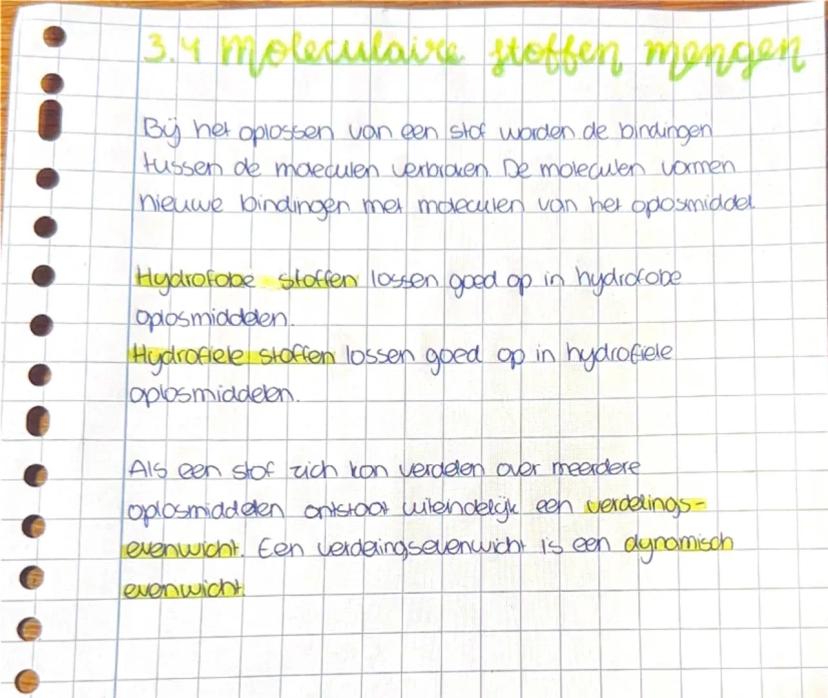 3.4 Moleculaire stoffen mengen
Bij het oplossen van een stof worden de bindingen
tussen de moleculen verbroken. De moleculen vormen
nieuwe bindingen met moleculen van het oplosmiddel
Hydrofobe stoffen lossen goed op in hydrofobe
oplosmiddelen.
Hydrofiele stoffen lossen goed op in hydrofiele
oplosmiddelen.
Als een stof zich kan verdelen over meerdere
oplosmiddelen ontstaat uiteindelijk een verdelings-
evenwicht. Een verdelingsevenwicht is een dynamisch
evenwicht.